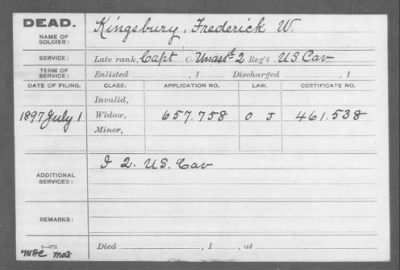 DEAD.
NAME OF SOLDIER:
Kingsbury, Frederick W.
SERVICE:
Late rank, Capt Co. Unass'd 2 Reg't US. Cav
TERM OF SERVICE:
Enlisted , 1 Discharged , 1
DATE OF FILING. CLASS. APPLICATION NO. LAW. CERTIFICATE NO.
Invalid,
1897 July 1 Widow, 657.758 O J 461.538
Minor,
ADDITIONAL SERVICES:
I 2. US. Cav
REMARKS:
Died , 1 , at